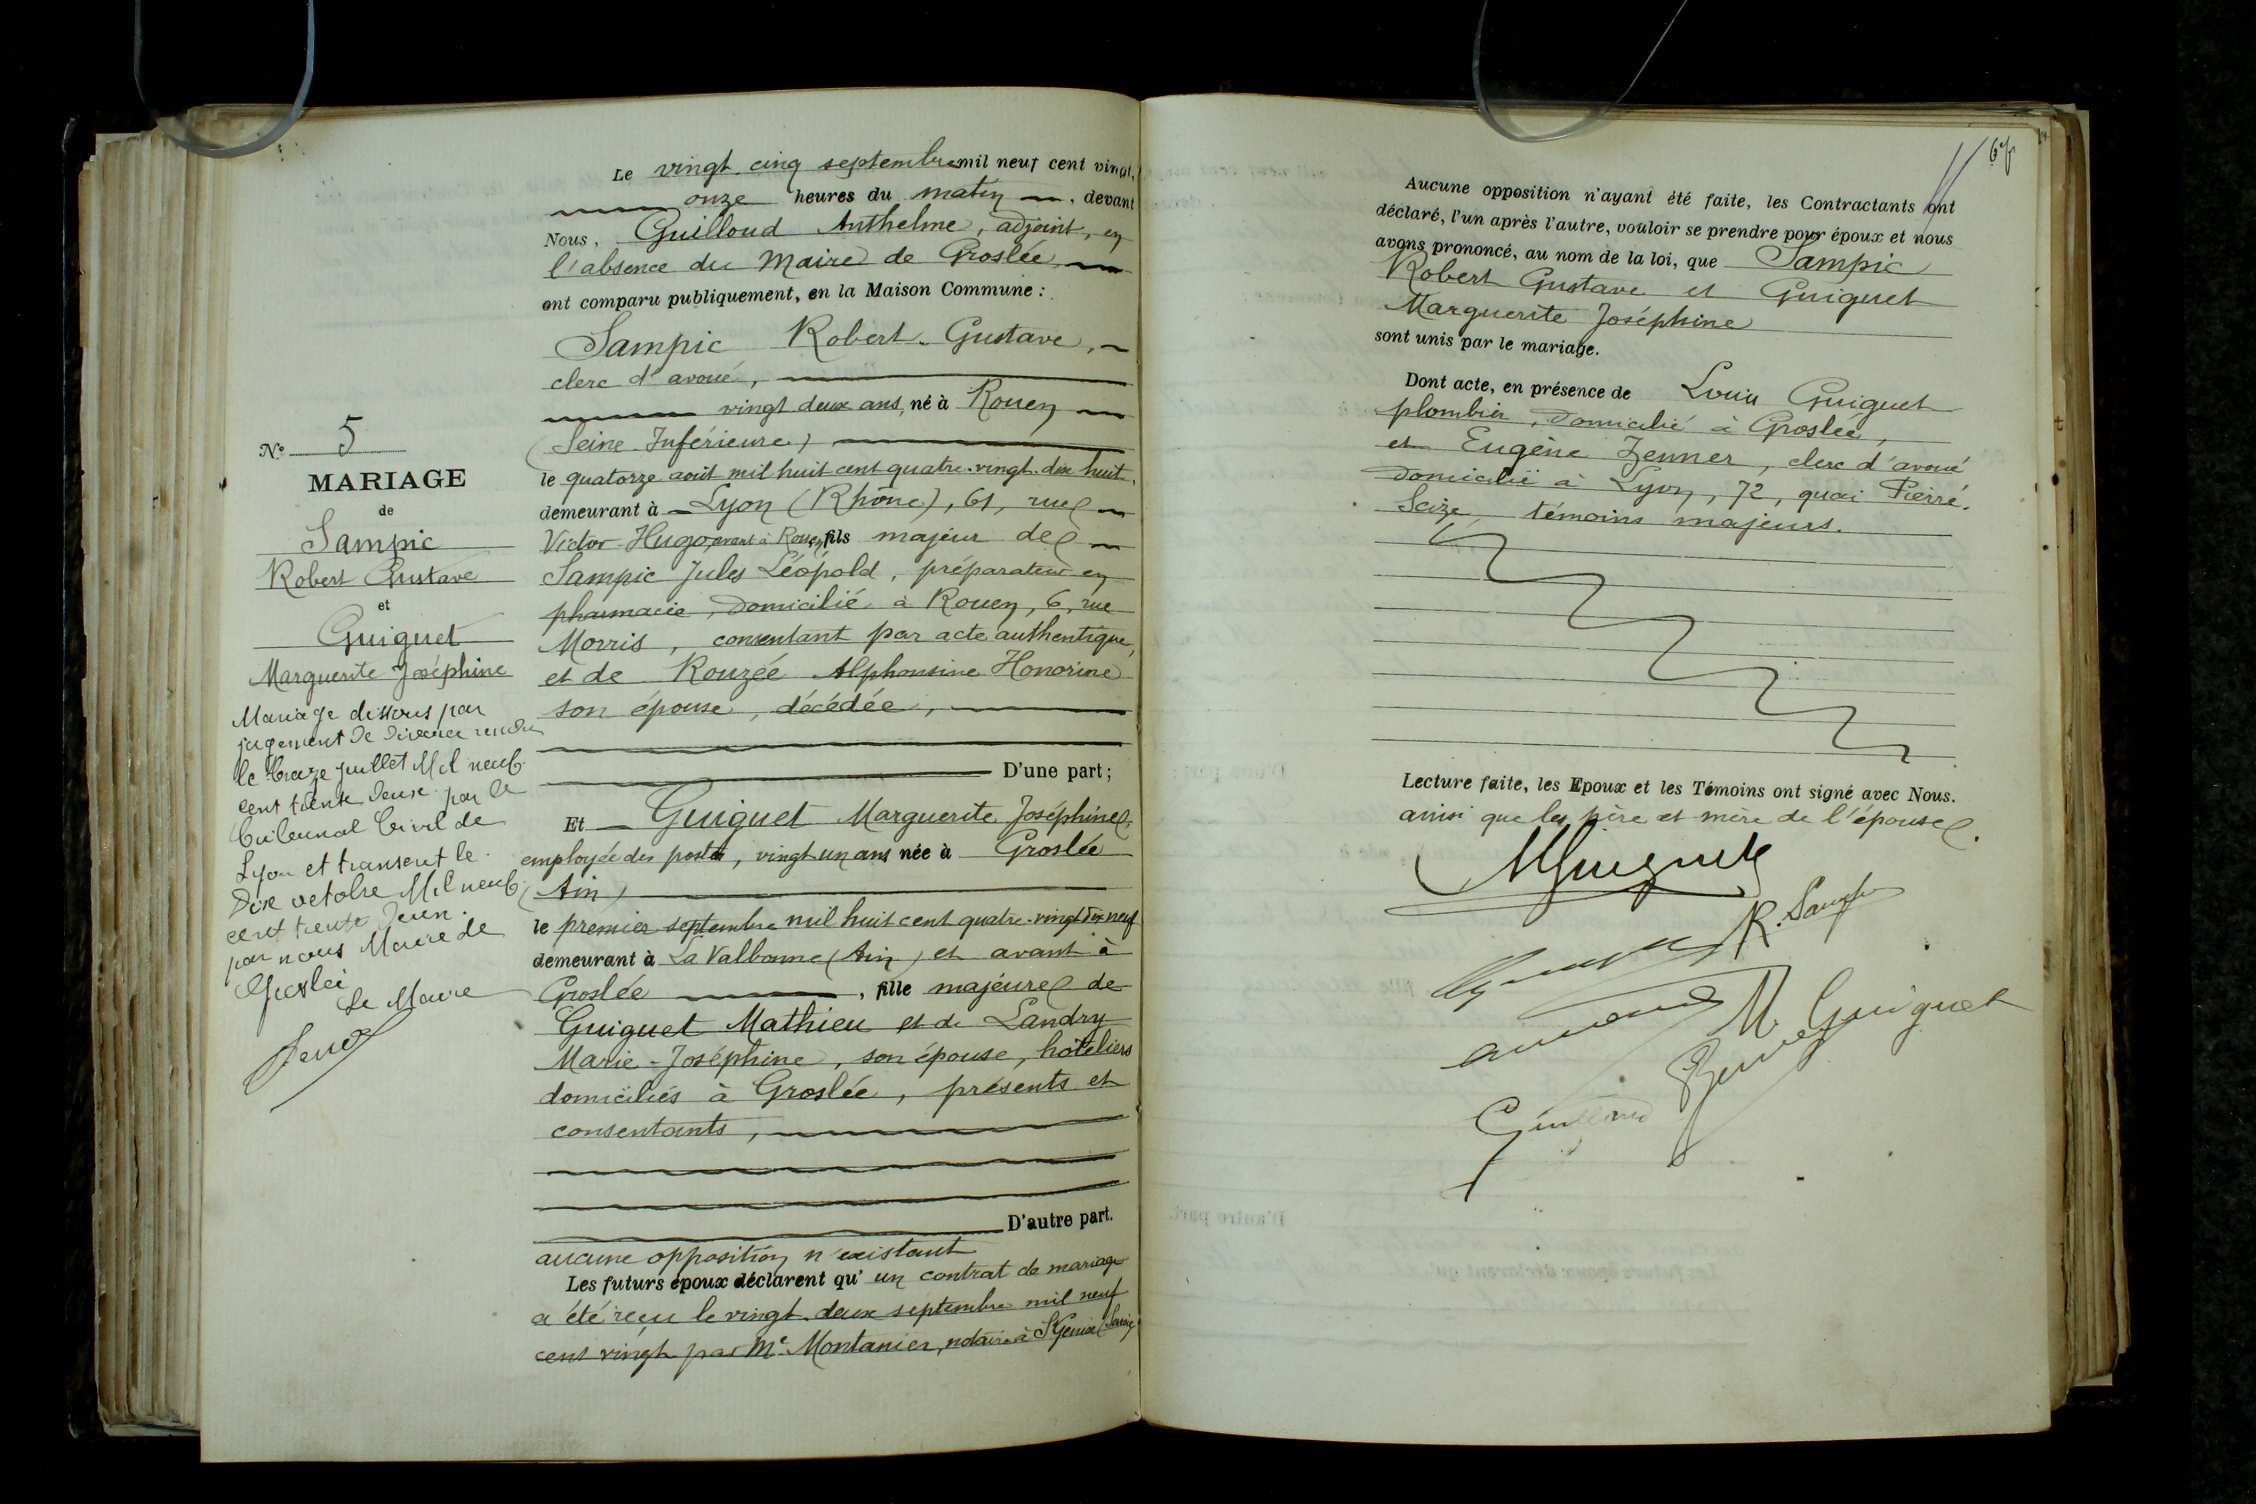 N° 5
MARIAGE
de
Sampic
Robert Gustave
et
Guiguet
Marguerite Joséphine
Mariage dissous par
jugement de divorce rendu
le treize juillet Mil neuf
cent trente deux par le
tribunal Civil de
Lyon et transcrit le
Dix octobre Mil neuf
cent trente deux
par nous Maire de
Groslée
Le Maire
Le vingt cinq septembre mil neuf cent vingt,
onze heures du matin, devant
Nous, Guilloud Anthelme, adjoint, en
l'absence du Maire de Groslée
ont comparu publiquement, en la Maison Commune :
Sampic Robert Gustave,
clerc d'avoué,
vingt deux ans, né à Rouen
(Seine Inférieure)
le quatorze août mil huit cent quatre-vingt-dix-huit,
demeurant à Lyon (Rhône), 61, rue
Victor Hugo, avant à Rouen, fils majeur de
Sampic Jules Léopold, préparateur en
pharmacie, domicilié à Rouen, 6, rue
Morris, consentant par acte authentique,
et de Rouzée Alphonsine Honorine
son épouse, décédée,
D'une part;
Et Guiguet Marguerite Joséphine,
employée des postes, vingt un ans née à Groslée
(Ain)
le premier septembre mil huit cent quatre-vingt dix neuf
demeurant à La Valbonne (Ain) et avant à
Groslée, fille majeure de
Guiguet Mathieu et de Landry
Marie-Joséphine, son épouse, hôteliers
domiciliés à Groslée, présents et
consentants,
D'autre part.
aucune opposition n'existant
Les futurs époux déclarent qu' un contrat de mariage
a été reçu le vingt deux septembre mil neuf
cent vingt par Me Montanier, notaire à St Genix (Savoie)
67
Aucune opposition n'ayant été faite, les Contractants ont
déclaré, l'un après l'autre, vouloir se prendre pour époux et nous
avons prononcé, au nom de la loi, que Sampic
Robert Gustave et Guiguet
Marguerite Joséphine
sont unis par le mariage.
Dont acte, en présence de Louis Guiguet
plombier, domicilié à Groslée,
et Eugène Zenner, clerc d'avoué
domicilié à Lyon, 72, quai Pierre
Scize, témoins majeurs.
Lecture faite, les Epoux et les Témoins ont signé avec Nous.
ainsi que les père et mère de l'épouse.
MGuiguet
R. Sampic
M. Guiguet
Zenner
Guilloud